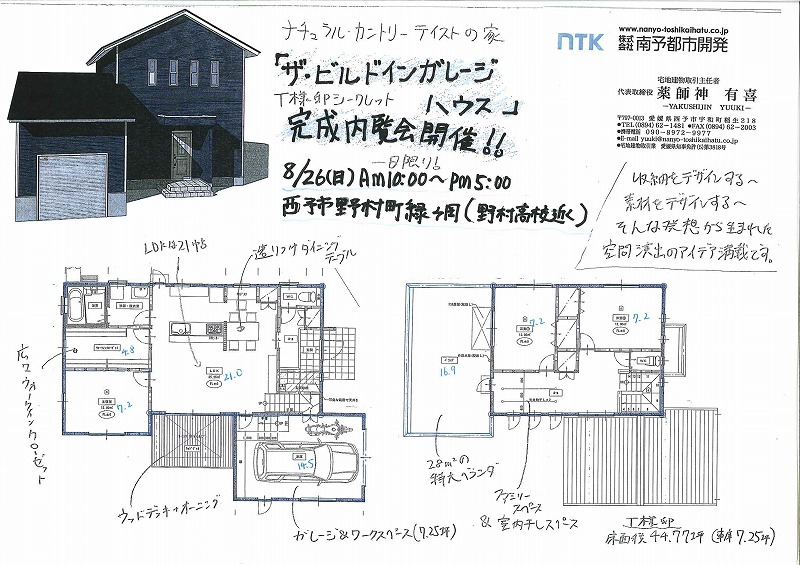 ナチュラル・カントリーテイストの家
「ザ・ビルドインガレージ
ハウス」
T様邸シークレット
完成内覧会開催!!
一日限り!
8/26(日) Am10:00〜Pm5:00
西予市野村町緑ヶ岡(野村高校近く)
NTK
www.nanyo-toshikaihatu.co.jp
株式会社 南予都市開発
宅地建物取引主任者
代表取締役 薬師神 有喜
―YAKUSHIJIN YUUKI―
●TEL(0894)62-1481 ●FAX(0894)62-2003
●携帯電話 090-8972-9977
●E-mail yuuki@nanyo-toshikaihatu.co.jp
収納をデザインする〜
素材をデザインする〜
そんな発想から生まれた
空間演出のアイデア満載です。
LDKは21帖
造りつけダイニング
テーブル
広々ウォークインクローゼット
4.8
7.2
LDK
21.0
WC
14.5
ウッドデッキ+オーニング
ガレージ&ワークスペース(7.25坪)
16.9
7.2
7.2
WC
28㎡の
特大ベランダ
ファミリー
スペース
&室内干しスペース
T様邸
床面積 44.77坪(車庫7.25坪)